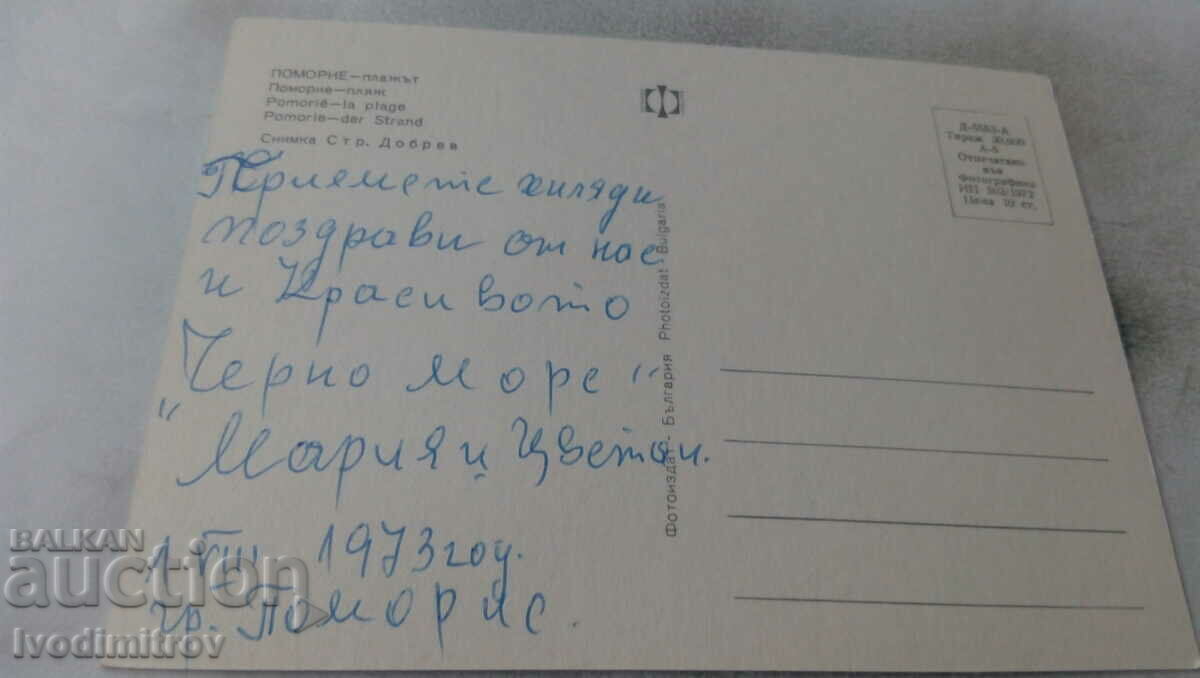 ПОМОРИЕ—плажът
Поморие—пляж
Pomorié—la plage
Pomorie—der Strand
Снимка Стр. Добрев
Приемете хиляди
поздрави от нас
и Красивото
Черно море"
"Мария и Цветан.
1 VIII 1973 год.
гр. Поморие.
Фотоиздат - България Photoizdat - Bulgaria
Тираж 30,000
А-6
Отпечатано
във
Фотографика
Цена 10 ст.
BALKAN
auction
Ivodimitrov